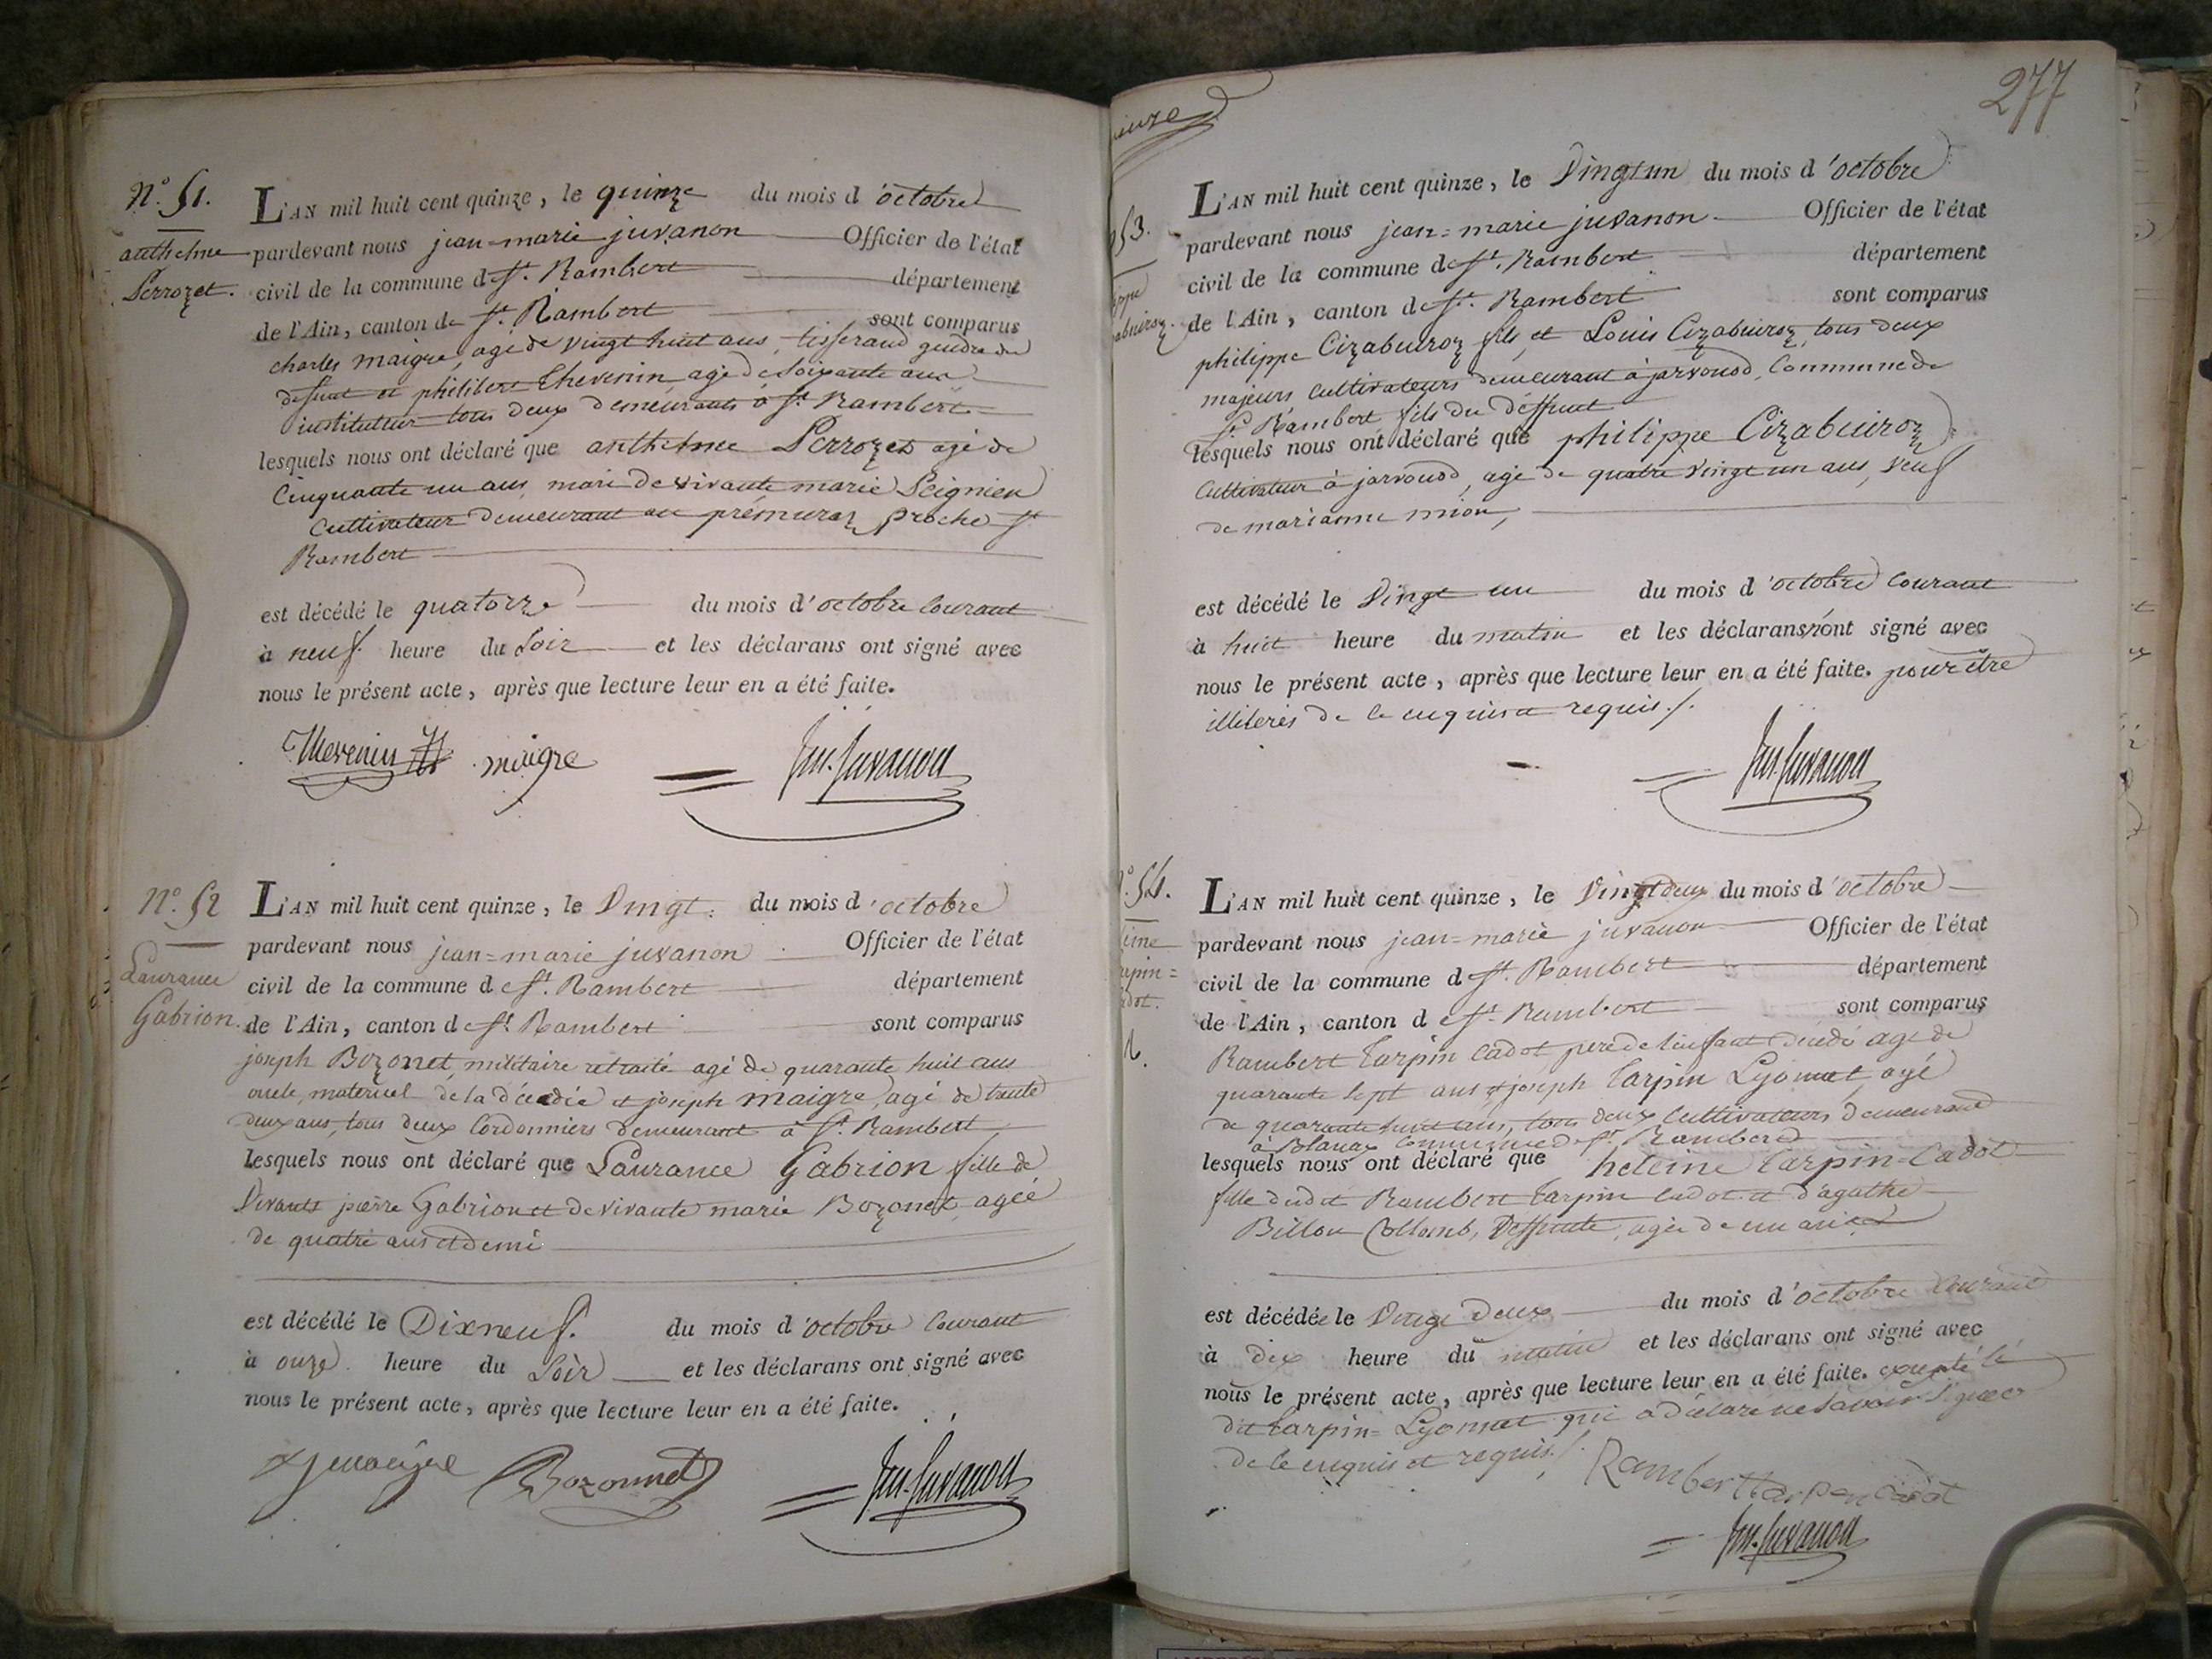 N.° 51.
anthelme
Perrozet.
L'AN mil huit cent quinze, le quinze du mois d'octobre
pardevant nous jean=marie juvanon Officier de l'état
civil de la commune de St. Rambert département
de l'Ain, canton de St. Rambert sont comparus
charles maigre, agé de vingt huit ans, tisserand gendre du
defunt et philibert thevenin agé de soixante ans
instituteur tous deux demeurants à St. Rambert
lesquels nous ont déclaré que anthelme Perrozet agé de
Cinquante un ans, mari de vivante marie Seignieu
Cultivateur demeurant au prémuraz proche St
Rambert
est décédé le quatorze du mois d'octobre Courant
à neuf heure du Soir et les déclarans ont signé avec
nous le présent acte, après que lecture leur en a été faite.
Thevenin maigre Jm. Juvanon
N.° 52
Laurance
Gabrion.
L'AN mil huit cent quinze, le Vingt du mois d'octobre
pardevant nous jean=marie juvanon Officier de l'état
civil de la commune de St. Rambert département
de l'Ain, canton de St Rambert sont comparus
joseph Bozonet, militaire retraité agé de quarante huit ans
oncle maternel de la décédée et joseph maigre, agé de trente
deux ans, tous deux Cordonniers demeurant à St. Rambert
lesquels nous ont déclaré que Laurance Gabrion fille de
Vivant pierre Gabrion et de vivante marie Bozonet, agée
de quatre ans et demi
est décédé le Dixneuf. du mois d'octobre Courant
à onze heure du Soir et les déclarans ont signé avec
nous le présent acte, après que lecture leur en a été faite.
Bozonnet Jm. Juvanon
277
53.
L'AN mil huit cent quinze, le Vingt un du mois d'octobre
pardevant nous jean=marie juvanon Officier de l'état
civil de la commune de St. Rambert département
de l'Ain, canton de St. Rambert sont comparus
philippe Cizabuiroz fils et Louis Cizabuiroz, tous deux
majeurs cultivateurs demeurant à jarvonod, Commune de
St. Rambert fils du déffunt
lesquels nous ont déclaré que philippe Cizabuiroz
Cultivateur à jarvonod, agé de quatre vingt un ans, veuf
de marianne mion,
est décédé le Vingt un du mois d'octobre Courant
à huit heure du matin et les déclarans n'ont signé avec
nous le présent acte, après que lecture leur en a été faite. pour être
illiterés de ce enquis et requis ./.
Jm. Juvanon
N.° 54.
L'AN mil huit cent quinze, le Vingt deux du mois d'octobre
pardevant nous jean=marie juvanon Officier de l'état
civil de la commune de St. Rambert département
de l'Ain, canton de St. Rambert sont comparus
Rambert Tarpin Cadot, pere de l'enfant décédé agé de
quarante sept ans et joseph Tarpin Lyonnet, agé
de quarante huit ans, tous deux Cultivateurs demeurant
à Blanaz Commune de St. Rambert
lesquels nous ont déclaré que heleine Tarpin=Cadot
fille dudit Rambert Tarpin Cadot et d'agathe
Billon Collomb, deffunte, agée de un an
est décédée le Vingt deux du mois d'octobre Courant
à dix heure du matin et les déclarans ont signé avec
nous le présent acte, après que lecture leur en a été faite. excepté le
dit Tarpin=Lyonnet qui a déclaré ne Savoir Signer
de ce enquis et requis ./. Rambert tarpen cadot
Jm. Juvanon